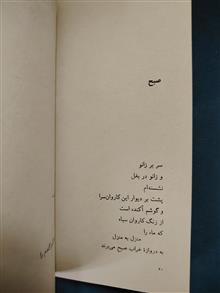 صبح
سر بر زانو
و زانو در بغل
نشسته‌ام
پشت بر دیوار این کاروان‌سرا
و گوشم آکنده است
از زنگ کاروان سیاه
که ماه را
منزل به منزل
به دروازهٔ خراب صبح می‌برند